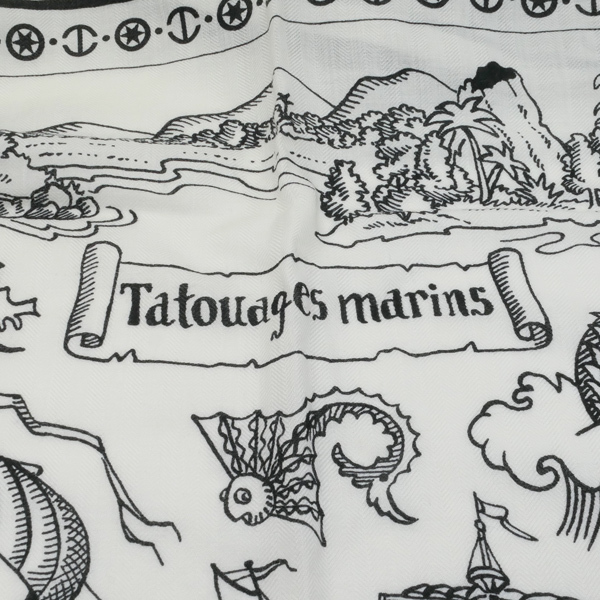 Tatouages marins